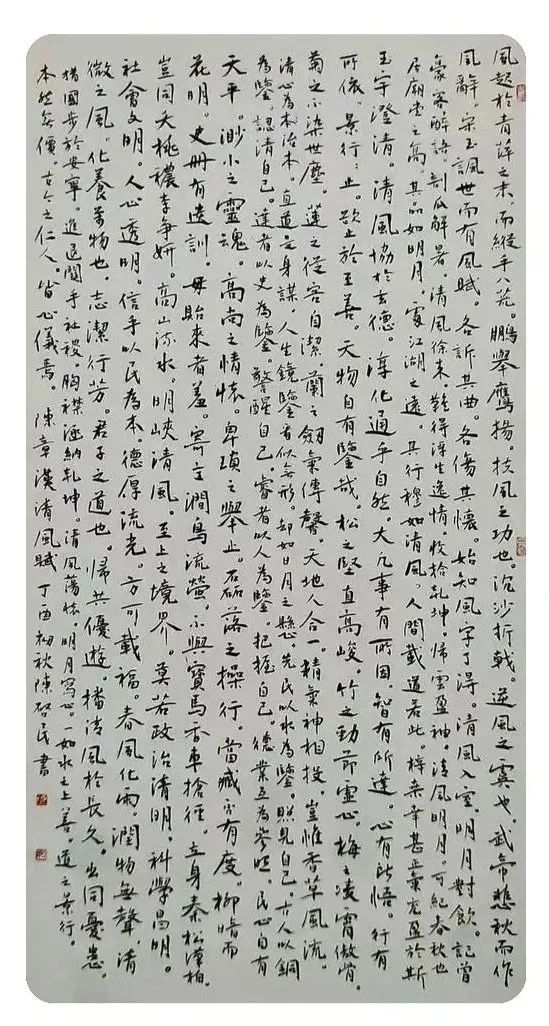 風起於青萍之末。而縱乎八荒。鵬舉鷹揚。扶風之功也。沉沙折戟。逆風之寞也。武帝悲秋而作
風辭。宋玉諷世而有風賦。各訴其曲。各傷其懷。始知風字了得。清風入室。明月對飲。記曾
解語。剖瓜解暑。清風徐來。難得浮生逸情。收拾乾坤。歸雲盈神。清風明月。可紀春秋也
居廟堂之高。其品如明月。處江湖之遠。其行穆如清風。人間載道若此。梓桑幸甚。正氣充盈於斯
玉宇澄清。清風協於玄德。淳化通乎自然。大凡事有所因。智有所達。心有所悟。行有
所依。景行行止。欲止於至善。天物自有鑒哉。松之堅直高峻。竹之勁節虛心。梅之凌霄傲骨。
菊之不染世塵。蓮之從容自潔。蘭之剛氣傳馨。天地人合一。精氣神相投。豈惟香草風流。
清心為本治本。直道是身謀。人生鏡鑒看似無形。卻如日月之懸。先民以水為鑒。照見自己。古人以銅
為鑒。認清自己。達者以史為鑒。警醒自己。睿者以人為鑒。把握自己。德業互為參照。民心自有
天平。渺小之靈魂。高尚之情懷。卑瑣之舉止。磊落之操行。當臧否有度。柳暗而
花明。史冊有遺訓。毋貽來者羞。寄立澗鳥流螢。不與寶馬香車搶徑。立身秦松漢柏。
豈同夭桃穠李爭妍。高山流水。明峽清風。至上之境界。莫若政治清明。科學昌明。
社會文明。人心透明。信乎以民為本。德厚流光。方可載福。春風化雨。潤物無聲。清
微之風。化養萬物也。志潔行芳。君子之道也。歸其優遊。播清風於長久。出同憂患。
措國步於安寧。進退關乎社稷。胸襟涵納乾坤。清風蕩懷。明月寫心。一如水之上善。道之景行。
本然無價。古今之仁人。皆心儀焉。陳章漢清風賦 丁酉初秋陳啓民書